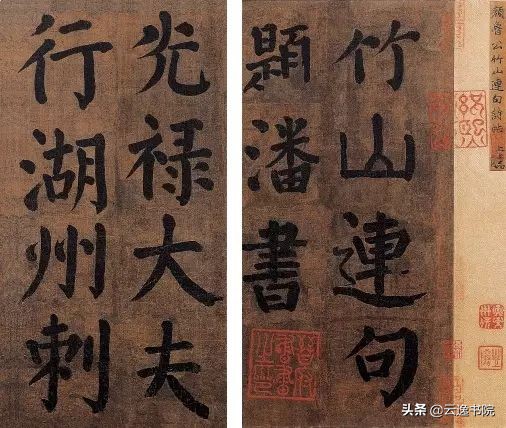 顏魯公竹山連句詩帖
竹山連句
題潘書
光禄大夫
行湖州刺
头条 @云逸书院